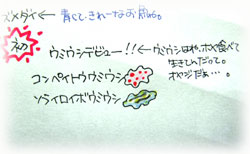 ズメダイ← 青くて、きれーなお魚。
初
ウミウシデビュー!!← ウミウシはね、ホヤ食べて
生きてんだって。
オヤジだぁ…。
コンペイトウウミウシ
ソライロイボウミウシ